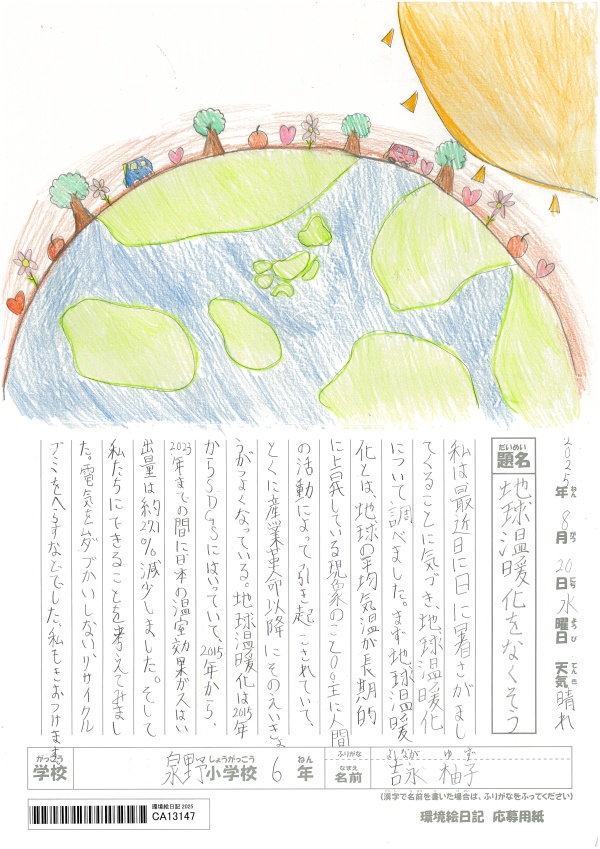 2025年ねん 8月がつ 20日にち 水曜日ようび 天気てんき 晴れ
だいめい
題名 地球温暖化をなくそう
私は最近日に日に暑さがまし
てくることに気づき、地球温暖化
について、調べました。まず地球温暖
化とは、地球の平均気温が長期的
に上昇している現象のこと。主に人間
の活動によって引き起こされていて、
とくに産業革命以降にそのえいきょ
うがつよくなっている。地球温暖化は2015年
からSDGSにはいっていて、2015年から、
2023年までの間に日本の温室効果ガスはい
出量は約27.1%減少しました。そして
私たちにできることを考えてみまし
た。電気をムダづかいしない、リサイクル
ゴミをへらすなどでした。私もきおつけます。
がっこう
学校 泉野小学校しょうがっこう 6年ねん
ふりがな よしなが ゆず
なまえ
名前 吉永 柚子
(漢字で名前を書いた場合は、ふりがなをふってください)
環境絵日記 2025
CA13147
環境絵日記 応募用紙